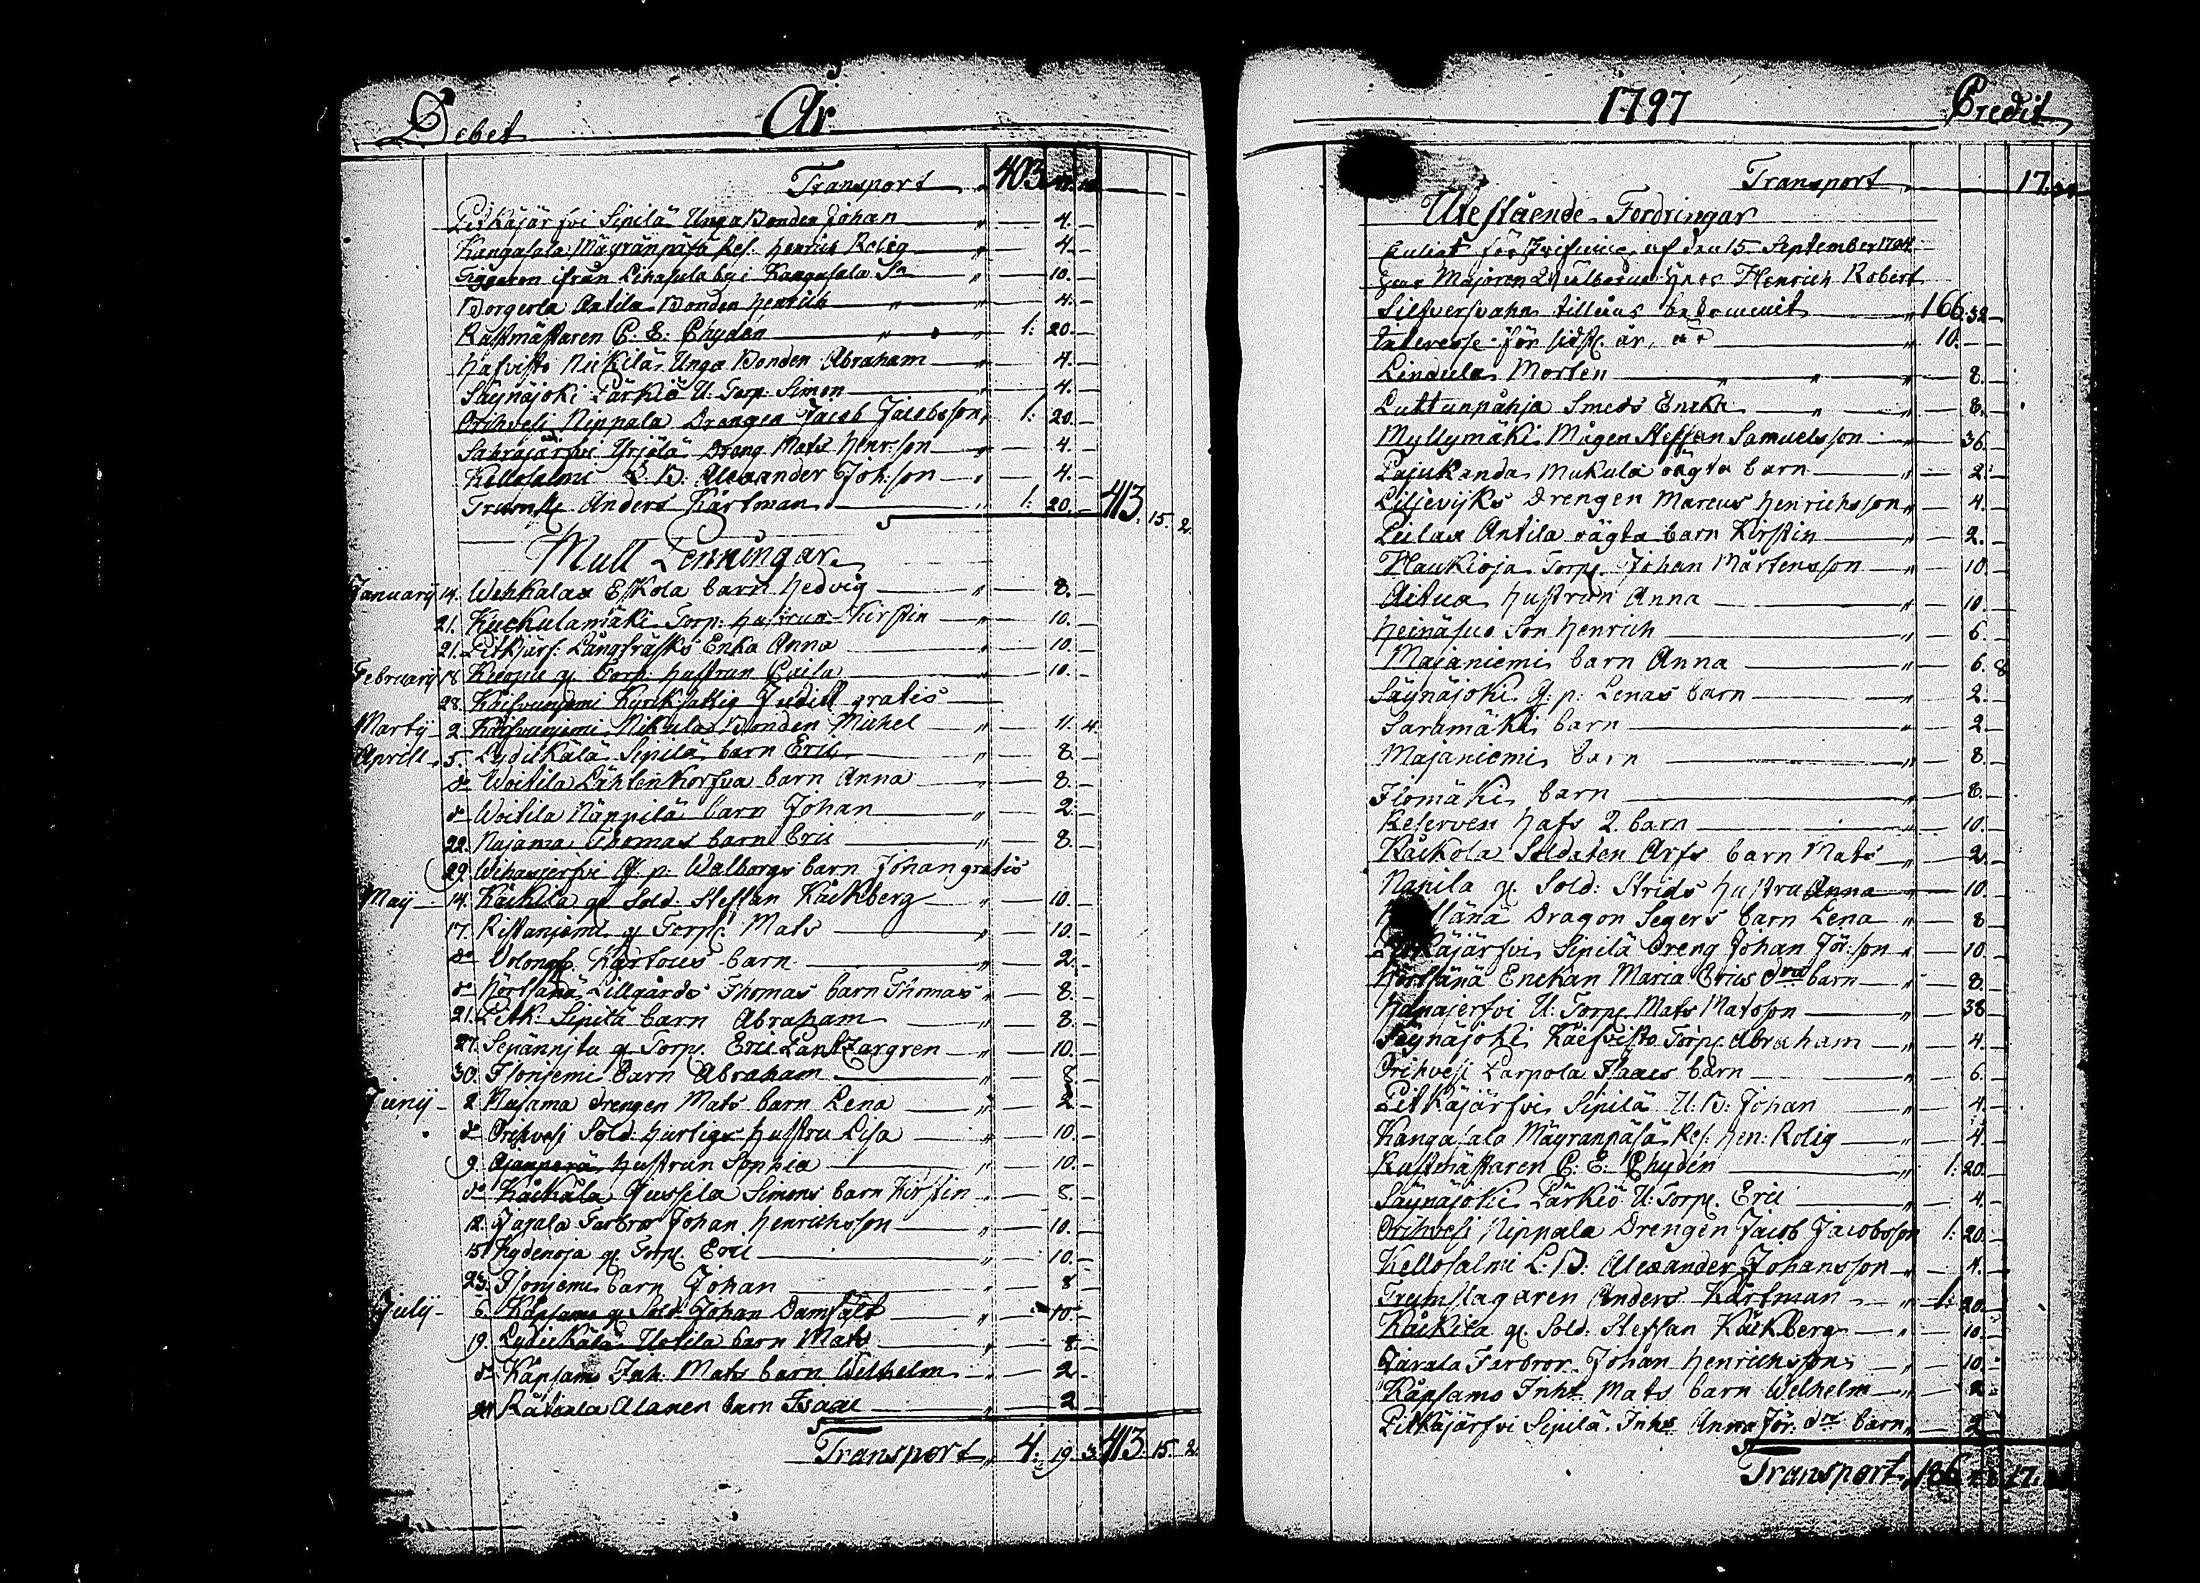 Debet År
Transport " 403.
Pitkäjärfvi Sipilä Unga Bonden Johan " 4. -
Kangasala Mäyränpäsä Res. Henrich Rolig " 4 -
ifrån Lihasula by i Kangasala Sn " 10. -
Borgerla Antila Bonden Henrich " 4. -
Rustmästaren C. E. Chydén " 1: 20. -
Hafvisto Nickilä Unga Bonden Abraham " 4. -
Säynäjoki Pärkiö U. Torp. Simon " 4. -
Orihvesi Nippala Drengen Jacob Jacobsson " 1: 20. -
Sahrajärfvi Yrjölä Dreng Mats Henr:son " 4. -
Kellosalmi L. B. Alexander Joh:son " 4. -
Trumsl. Anders Kärtman " 1: 20. - 413. 15. 2.
Mull Penningar
January 14. Wehkalax Eskola barn Hedvig " 8. -
21. Kuckulamäki Torp: hustrun Kirstin " 10. -
21. Pitkjärf: Långträsks Enka Anna " 10. -
February 18. Torp: hustrun Caisa " 10. -
28. Juditt gratis
Martij 2. Nikula Bonden Michel " 11. 4.
Aprill 5. Lydickälä Sipilä barn Eric " 8. -
do Woitila Lähtenkorfva barn Anna " 8. -
do Woitila Näppilä barn Johan " 2. -
22. Najama Thomas barn Eric " 8. -
29. Wihasjerfvi Q. p. Walborgs barn Johan gratis
Maij 14. Käikilä q. Sold: Steffan Käckberg " 10. -
17. Ristanjemi q Torp: Mats " 10. -
do Volont: barn " 2. -
do Hörtsänä Lillgårds Thomas barn Thomas " 8. -
21. Pitk: Sipilä barn Abraham " 8. -
27. Sepännjtu q Torp. Eric Pantzargren " 10. -
30. Ilonjemi barn Abraham " 8 -
Junij 2. Najama drengen Mats barn Lena " 2 -
do Orihvesi Sold: Hurtigs hustru Lisa " 10. -
9. Ajanperä hustrun Sophia " 10. -
do Käikälä Jussila Simons barn Kirstin " 8. -
12. Jajala Farbror Johan Henrichsson " 10. -
15. Kydenoja q. Torp. Eric " 10. -
23. Ilonjemi barn Johan " 8 -
Julij 6. Käpsamo q. Sold: Johan Damfält " 10. -
19. Lydickälä Uotila barn Mats " 8 -
do Käpsamo Inh: Mats barn Welhelm " 2 -
Alanen barn Isaac " 2
Transport " 4. 19. 3. 413. 15. 2.
1797 Credit
Transport 17.
Utestående Fordringar
Enligt förskrifning af den 15. September
har Majoren Henrich Robert
Silfversvahn tilluns Document " 166. 32 -
Interesse för sidst. år " 10. -
Lindula Morten " 8. -
Luttunpåhja Smeds Encka " 8. -
Myllymäki Mågen Steffan Samuelsson " 36. -
Pajukanda Mukula oägta barn " 2. -
Liljevijks Drengen Marcus Henrichsson " 4. -
Antila oägta barn Kirstin " 2. -
Haukioja Torp. Johan Mårtensson " 10. -
Aitua hustrun Anna " 10. -
Heinäsuo Son Henrich " 6. -
Majaniemi barn Anna " 6. 8
Säynäjoki Q: p: Lenas barn " 2. -
Saramäki barn " 2. -
Majaniemi barn " 8. -
Ilomäki barn " 8. -
Reserven Hafs 2. barn " 10. -
Käikola Soldaten Arfs barn Mats " 2. -
Napila q. Sold: Strids hustru Anna " 10. -
Dragon Segers barn Lena " 8 -
Pitkäjärfvi Sipilä Dreng Johan Jör:son " 10. -
Hörtsänä Enckan Maria Erics dotr barn " 8. -
Hanajerfvi U. Torp. Mats Matsson " 38 -
Säynäjoki Käefvisto Torp. Abraham " 4. -
Orihvesi Parpola Isaacs barn " 6. -
Pitkäjärfvi Sipilä U: B: Johan " 4. -
Kangasala Mäyranpäsä Res. Hen: Rolig " 4. -
Rustmästaren C: E: Chydén " 1: 20. -
Säynäjoki Pärkiö U: Torp. Eric " 4. -
Orihvesi Nippala Drengen Jacob Jacobsson 1: 20. -
Kellosalmi L: B: Alexander Johansson " 4. -
Trumslagaren Anders Kärtman " 1: 20. -
Käikilä q. Sold: Steffan Käckberg " 10. -
Jävala Farbror Johan Henrichsson " 10. -
Käpsamo Inh: Mats barn Welhelm " 2 -
Pitkäjärfvi Sipilä Inhs Anna Jör: dotr barn " 2 -
Transport 186. 17.